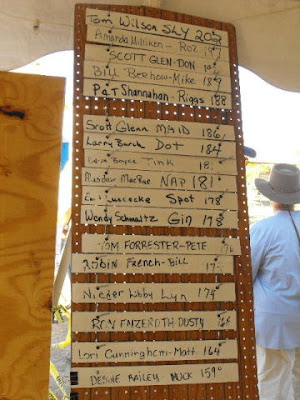 Tom Wilson SLY 202
Amanda Milliken - Roz 197
SCOTT GLEN-DON
Bill Berhow-Mike 189
PAT Shannahan - Riggs 188
Scott Glenn MAID 186
Larry Burch Dot 184
Boyce Tink 18
MacRae NAP 181
Spot 178
Wendy Schmaltz Gin 178
TOM FORRESTER-PETE
ROBIN French-Bill 17
Libby Lyn 174
RON ENZEROTH-DUSTY
Lori Cunningham-Matt 164
DESIRE BAILEY - MUCK 159